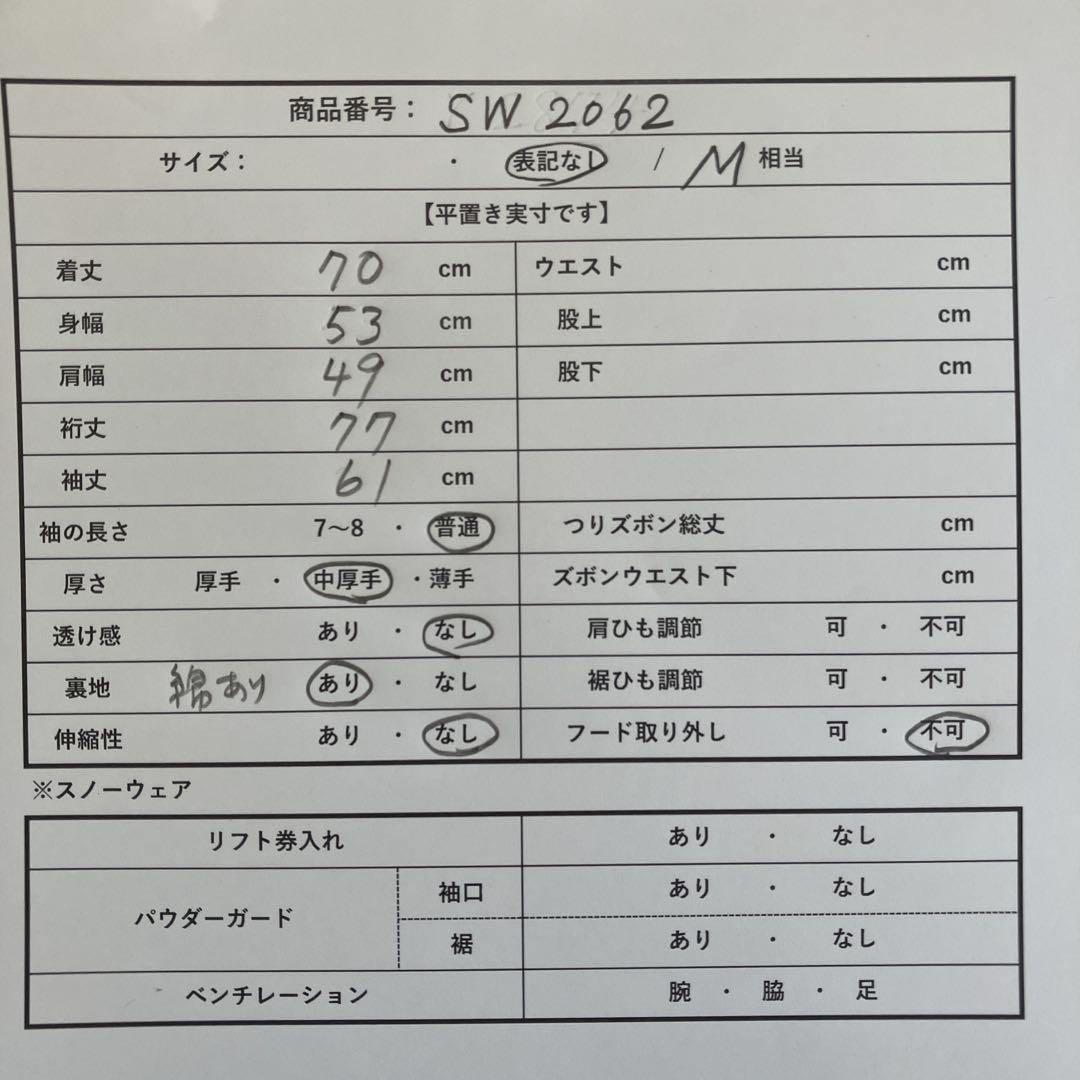 商品番号： SW 2062
サイズ： ・ 表記なし / M 相当
【平置き実寸です】
着丈 70 cm ウエスト cm
身幅 53 cm 股上 cm
肩幅 49 cm 股下 cm
裄丈 77 cm
袖丈 61 cm
袖の長さ 7〜8 ・ 普通 つりズボン総丈 cm
厚さ 厚手 ・ 中厚手 ・ 薄手 ズボンウエスト下 cm
透け感 あり ・ なし 肩ひも調節 可 ・ 不可
裏地 綿あり あり ・ なし 裾ひも調節 可 ・ 不可
伸縮性 あり ・ なし フード取り外し 可 ・ 不可
※スノーウェア
リフト券入れ あり ・ なし
パウダーガード 袖口 あり ・ なし
裾 あり ・ なし
ベンチレーション 腕 ・ 脇 ・ 足